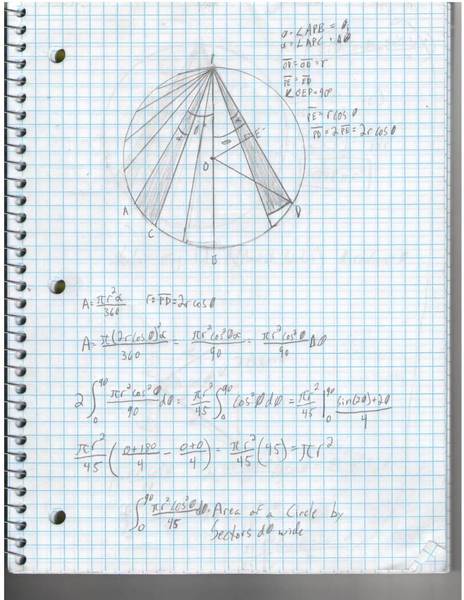 α=∠APC = Δθ
OP=OD=r
PE=ED
∠OEP=90°
PE=rcosθ
PD=2PE=2rcosθ
P
θ
α
θ
E
O
D
A
C
B
A=πr²α/360 r=PD=2rcosθ
A=π(2rcosθ)²α/360 = πr²cos²θα/90 = πr²cos²θ/90 Δθ
2∫₀⁹⁰ πr²cos²θ/90 dθ = πr²/45 ∫₀⁹⁰ cos²θdθ = πr²/45 |₀⁹⁰ sin(2θ)+2θ/4
πr²/45 (0+180/4 - 0+0/4) = πr²/45 (45) = πr²
∫₀⁹⁰ πr²cos²θ/45 dθ = Area of a Circle by
Sectors dθ wide